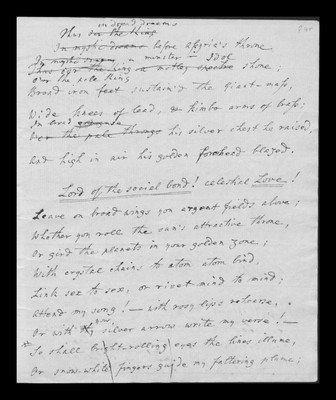 in dread dreams
Thus o'er the King
In mystic dreams before Assyria's throne
In mystic dreams, a monster — Idol
Thus o'er the King a motley spectre shone;
O'er the pale King
Broad iron feet sustain'd the giant-mass,
Wide knees of lead, & kimbo arms of brass;
In lurid
O'er the pale throng his silver chest he raised,
And high in air his golden forehead blazed.
Lord of the social bond! celestial Love!
Leave on broad wings your argent fields above;
Whether you roll the sun's attractive throne,
Or gird the planets in your golden zone;
With crystal chains to atom atom bind,
Link sex to sex, or rivet mind to mind;
Attend my song! — with rosy lips rehearse,
Or with thy silver arrow write my verse! —
So shall bright-rolling eyes the lines illume,
Or snow-white fingers guide my faltering plume;